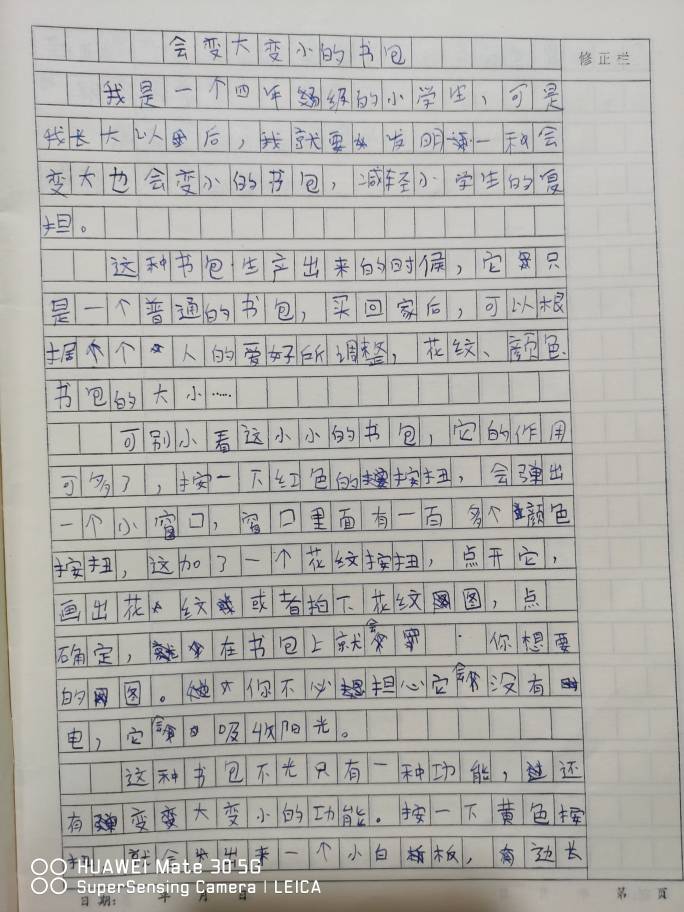 会变大变小的书包
修正栏
我是一个四年级的小学生，可是
我长大以后，我就要发明一种会
变大也会变小的书包，减轻小学生的复
担。
这种书包生产出来的时候，它只
是一个普通的书包，买回家后，可以根
据个人的爱好所调整，花纹、颜色
书包的大小……
可别小看这小小的书包，它的作用
可多了，按一下红色的按扭，会弹出
一个小窗口，窗口里面有一百多个颜色
按扭，这加了一个花纹按扭，点开它，
画出花纹或者拍下花纹图，点
确定，在书包上就会 你想要
的图。你不必担心它会没有
电，它会吸收阳光。
这种书包不光只有一种功能，还
有变大变小的功能。按一下黄色按
就会出来一个小白板，边长
HUAWEI Mate 30 5G
SuperSensing Camera | LEICA
日期： 年 月 日 第 页